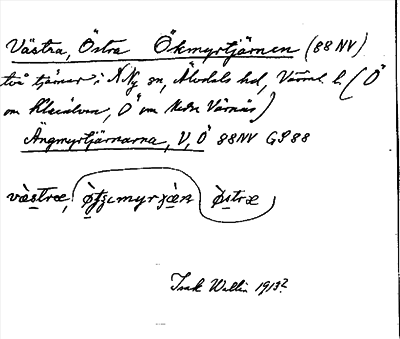 Västra, Östra Ökmyrtjärnen (88 NV)
två tjärnar i N Ny sn, Älvdals hd, Värml. l. (Ö
om Klarälven, Ö om Nedre Värnäs)
Ängmyrtjärnarna, V, Ö 88NV GS88
væstræ, øtʃɛmyrʒæn østræ
Isak Wallin 1913?